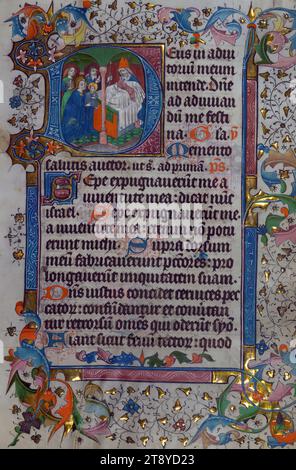 Deus in adiu
toriū meum
intende.
ad adiuuan
dū me festi
na. Gl̄a. p̄
Memento
salutis auctor. ut s. ad primā. ps.
Sepe expugnauerunt me a
iuuentute mea: dicat nūc
israel. Sepe expugnauerūt me
a iuuentute mea: etenim nō pot
uerunt michi. Supra dorsum
meū fabricauerunt pctōres: pro
longauerunt iniquitatem suam.
Dn̄s iustus concidet ceruices pec
catorū: confundantur et conuertan
tur retrorsū omēs qui oderūt syō.
Fiant sicut fenū tectorū: quod
alamy - 2T8YD23